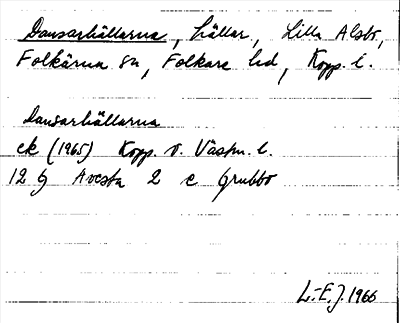 Dansarhällarna, hällar, Lilla Alsbo,
Folkärna sn, Folkare hd, Kopp. l.
Dansarhällarna
ek (1965) Kopp. o. Västm. l.
12 G Avesta 2 c Grubbo
L.-E.J. 1966